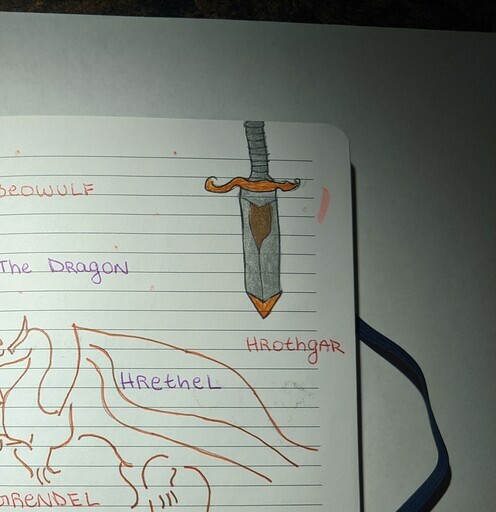 BEOWULF
The DRAGON
HROthgAR
HRetheL
GRENDEL